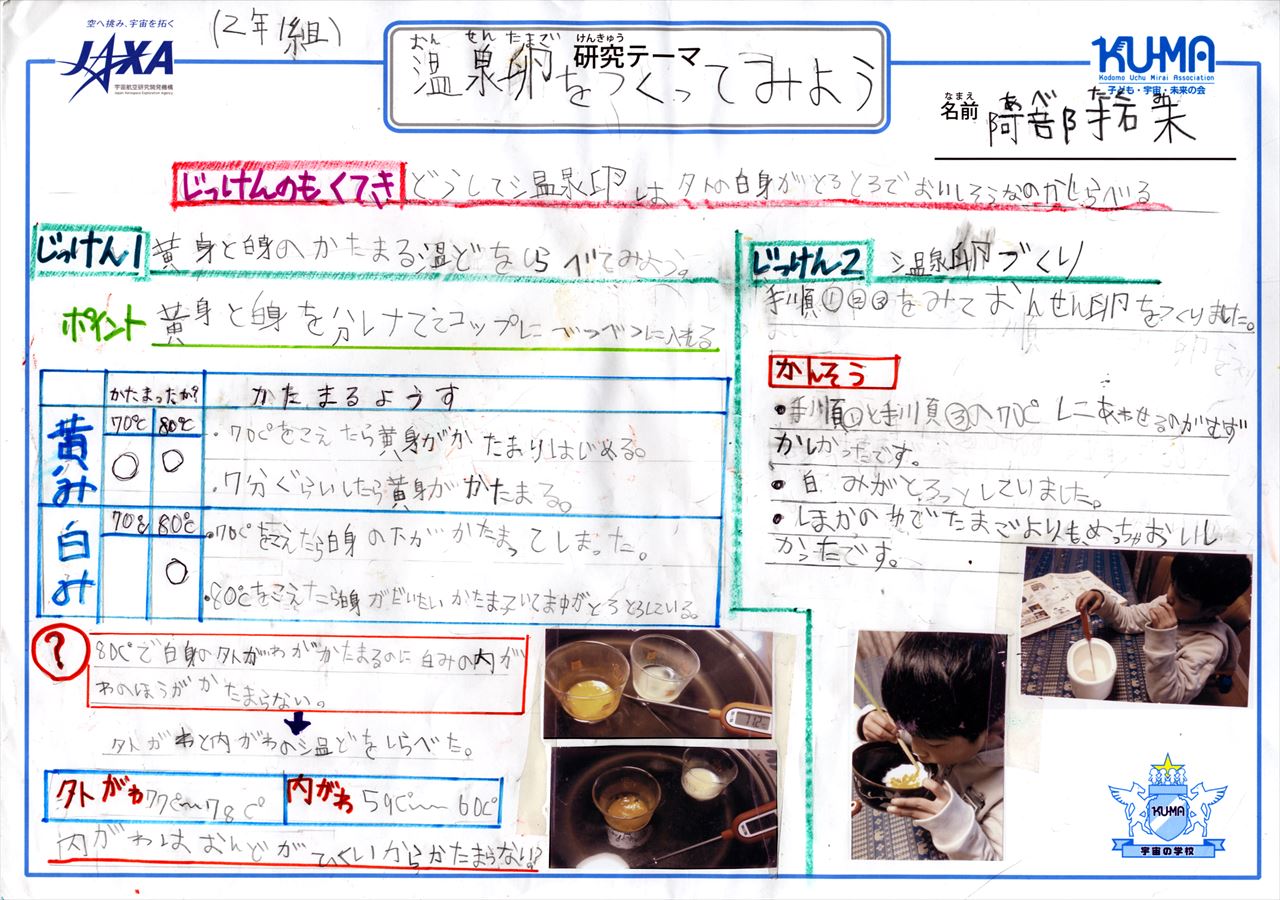 空へ挑み、宇宙を拓く
JAXA
宇宙航空研究開発機構
Japan Aerospace Exploration Agency
(2年1組)
おん せん たまご
けんきゅう
研究テーマ
温泉卵をつくってみよう
KU-MA
Kodomo Uchu Mirai Association
子ども・宇宙・未来の会
なまえ
名前
あべ たくみ
阿部拓未
じっけんのもくてき
どうして温泉卵は外の白身がとろとろでおいしそうなのかしらべる
じっけん1
黄身と白身のかたまる温どをしらべてみよう。
ポイント
黄身と白身を分けてコップにべつべつに入れる
かたまったか?
かたまるようす
黄み
70℃ 80℃
○ ○
・70℃をこえたら黄身がかたまりはじめる。
・7分ぐらいしたら黄身がかたまる。
白み
70℃ 80℃
○
・70℃をこえたら白身の下がかたまってしまった。
・80℃をこえたら白身がだいたいかたま
いてま中がとろとろしている。
?
80℃で白身の外がわがかたまるのに白みの内が
わのほうがかたまらない。
↓
外がわと内がわの温どをしらべた。
外がわ
77℃~78℃
内がわ
59℃~60℃
内がわはおんどがひくいからかたまらない?
じっけん2
温泉卵づくり
手順①②③をみておんせん卵をつくりました。
かんそう
・手順①と手順③の70℃にあわせるのがむず
かしかったです。
・白みがとろっとしていました。
・しまかのゆでたまごよりも、めっちゃおいし
かったです。
KU-MA
宇宙の学校